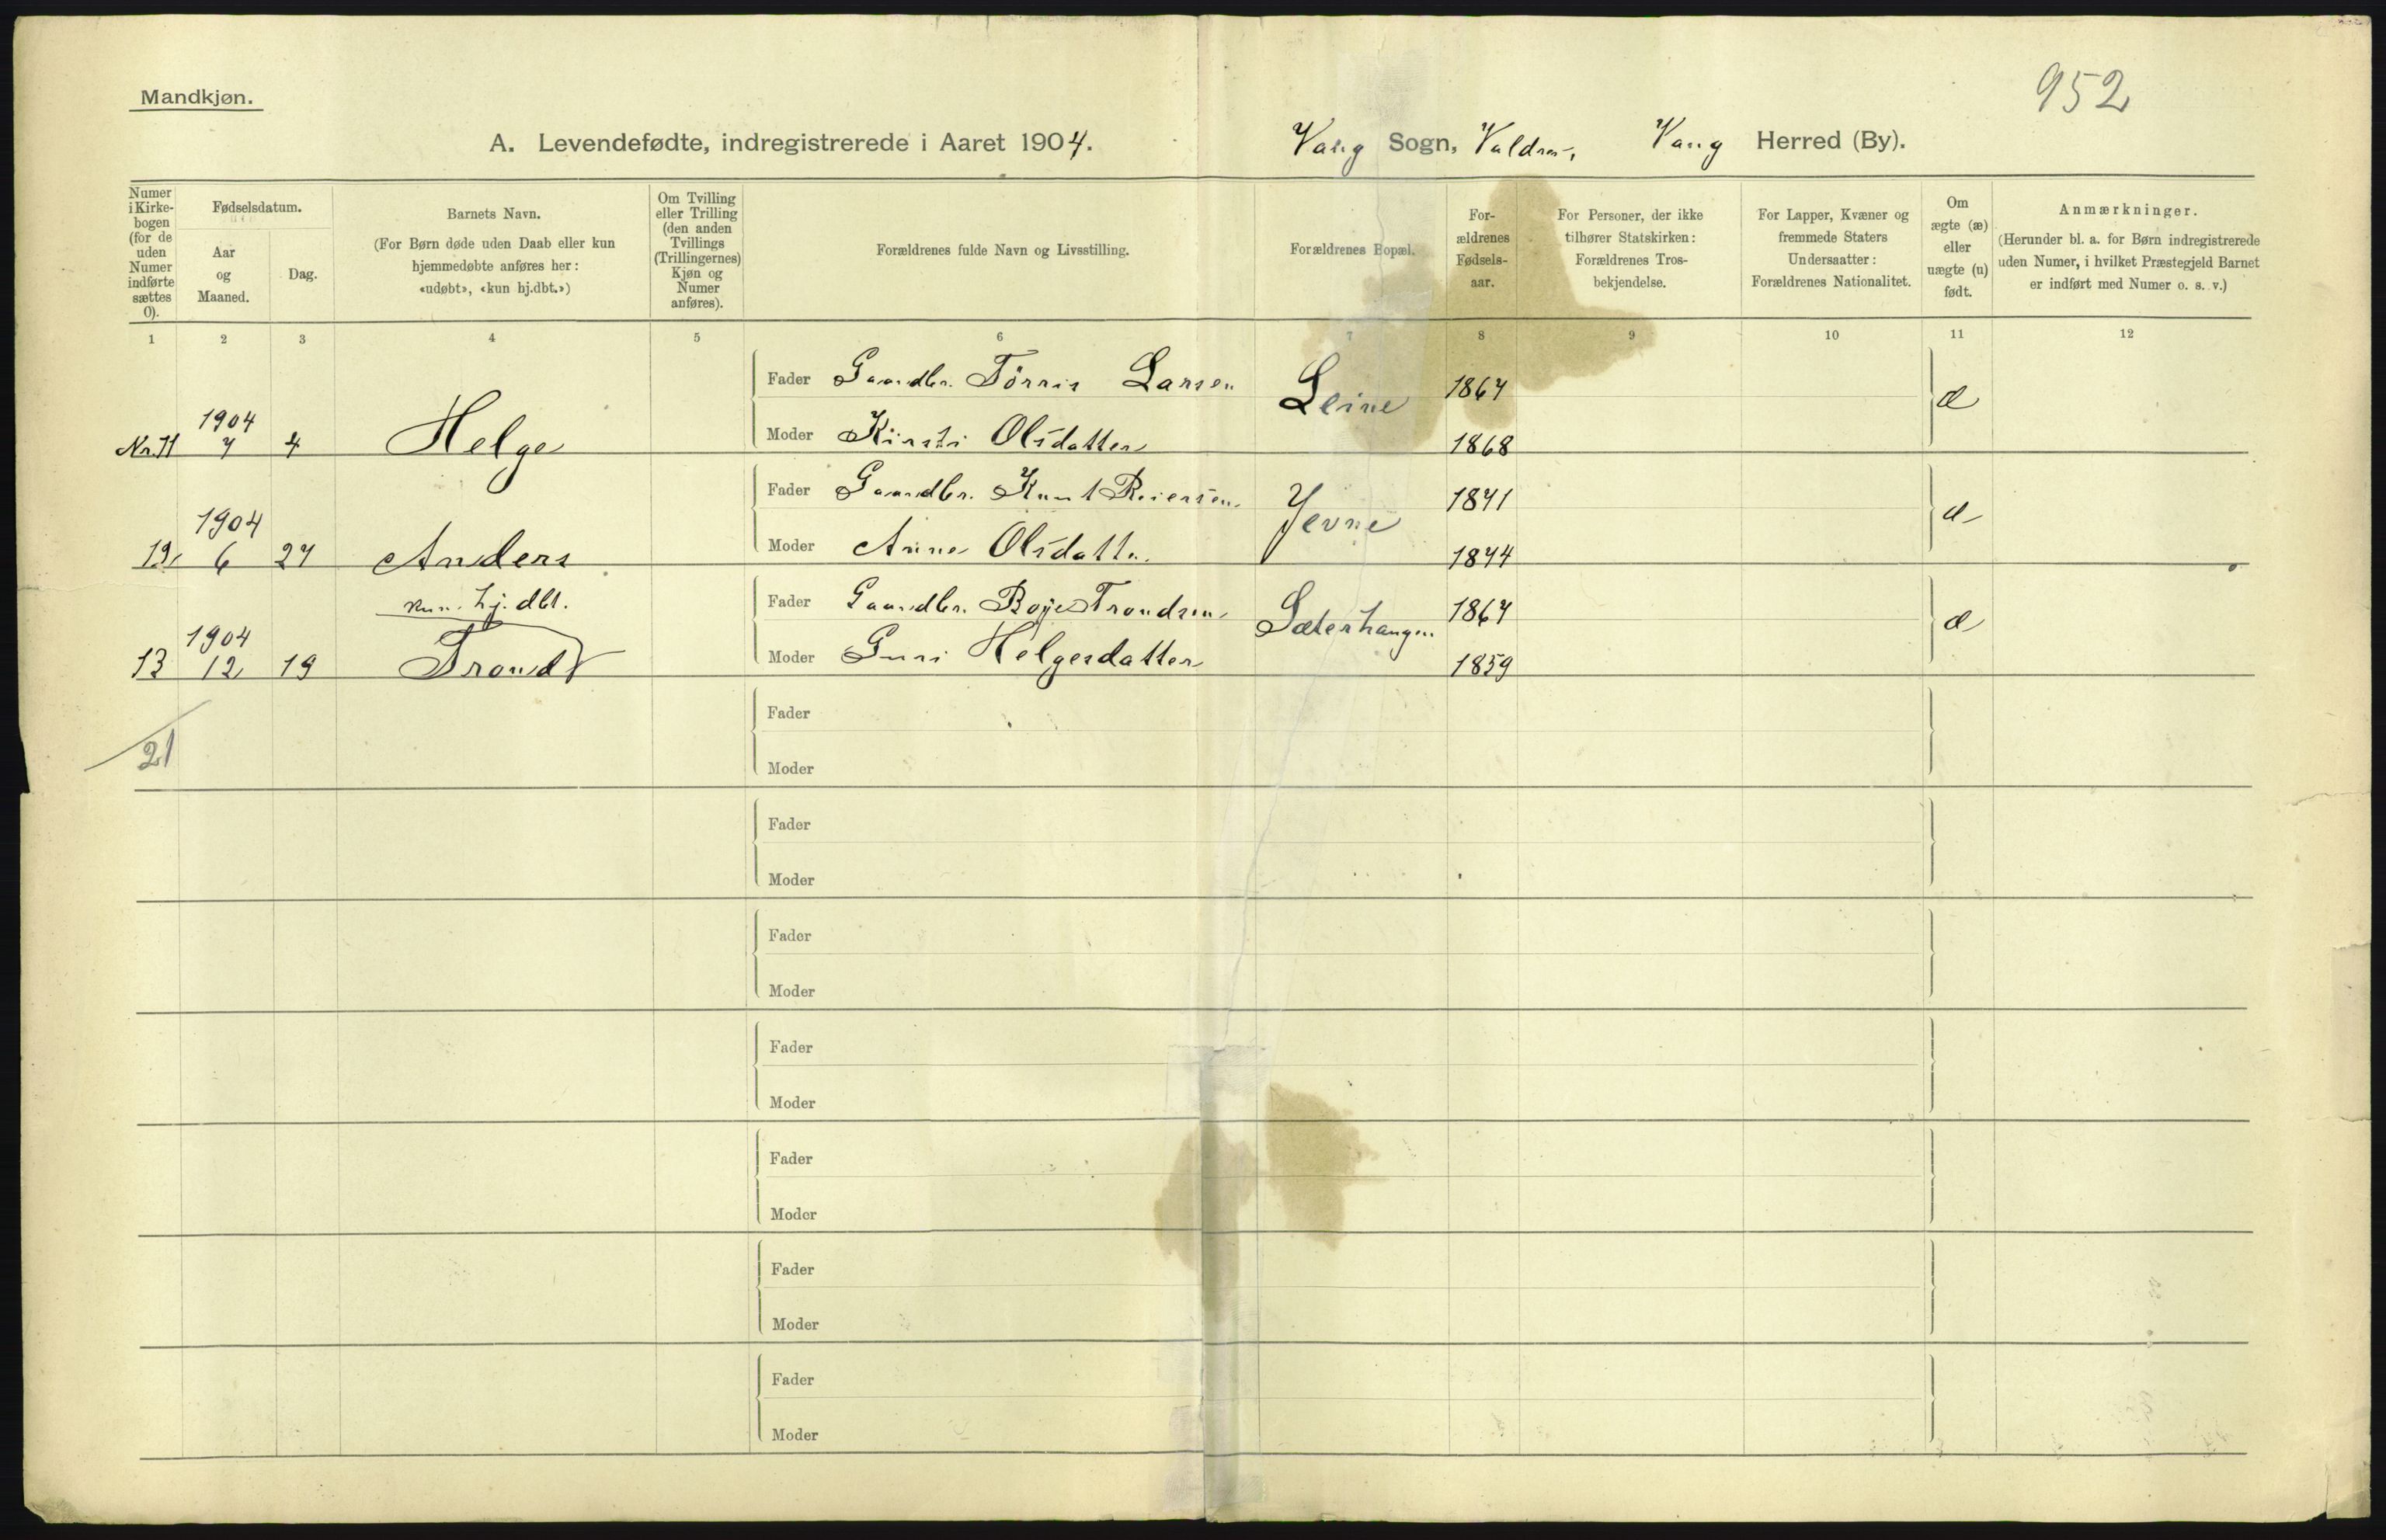 952
Mandkjøn.
A. Levendefødte, indregistrerede i Aaret 1904. Vang Sogn, Valdres, Vang Herred (By).
Numer i Kirke- bogen (for de uden Numer indførte sættes 0).
Fødselsdatum.
Aar og Maaned.
Dag.
Barnets Navn.
(For Børn døde uden Daab eller kun
hjemmedøbte anføres her:
«udøbt», «kun hj.dbt.»)
Om Tvilling
eller Trilling
(den anden
Tvillings
(Trillingernes)
Kjøn og
Numer
anføres).
Forældrenes fulde Navn og Livsstilling.
Forældrenes Bopæl.
For-
ældrenes
Fødsels-
aar.
For Personer, der ikke
tilhører Statskirken:
Forældrenes Tros-
bekjendelse.
For Lapper, Kvæner og
fremmede Staters
Undersaatter:
Forældrenes Nationalitet.
Om
ægte (æ)
eller
uægte (u)
født.
Anmærkninger.
(Herunder bl. a. for Børn indregistrerede
uden Numer, i hvilket Præstegjeld Barnet
er indført med Numer o. s. v.)
1 2 3 4 5 6 7 8 9 10 11 12
Fader Gaardbr. Törris Larsen Leine 1867 æ
Nr. 11 1904 7 4 Helge
Moder Kirsti Olsdatter 1868
Fader Gaardbr. Knut Reiersen Jevne 1871 æ
12 1904 6 27 Anders
Moder Anne Olsdatter 1874
kun hj. dbt.
Fader Gaardbr. Boje Trondsen Sæterhaugen 1867 æ
13 1904 12 19 Trond
Moder Guri Helgesdatter 1859
21
Fader
Moder
Fader
Moder
Fader
Moder
Fader
Moder
Fader
Moder
Fader
Moder
Fader
Moder